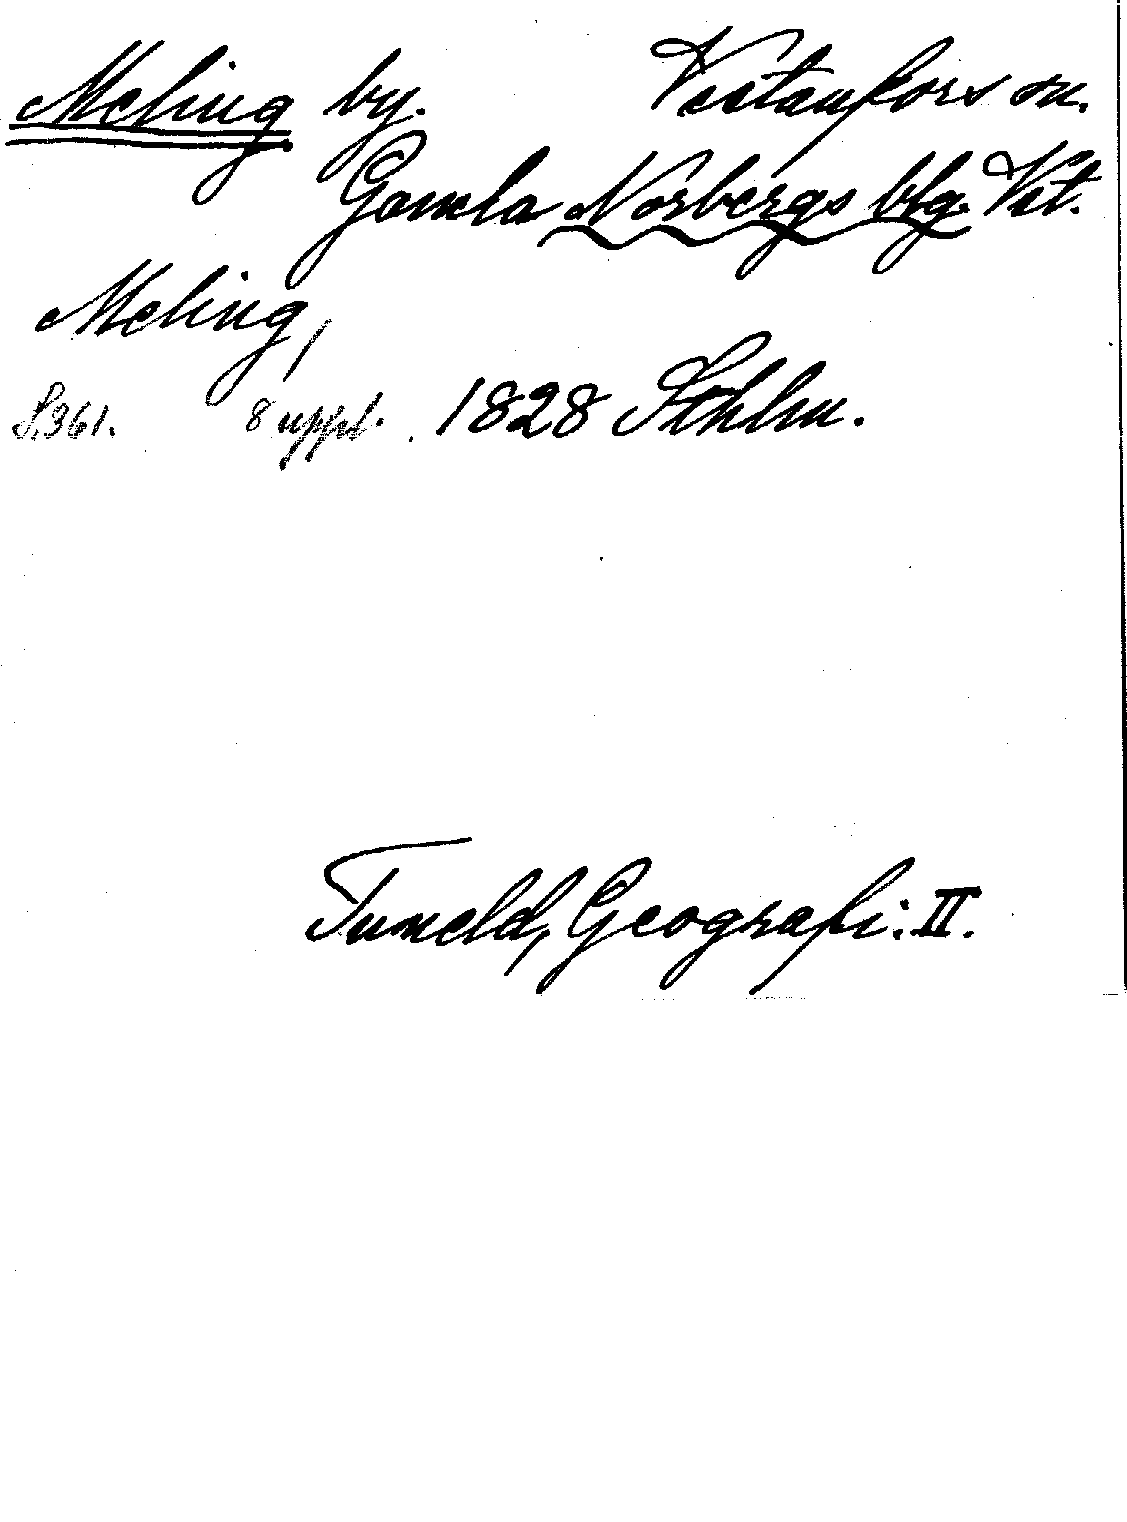 Meling by. Vestanfors sn.
Gamla Norbergs blg. Vst.
Meling,
S. 361. 8 uppl. 1828 Sthlm.
Tuneld, Geografi. II.